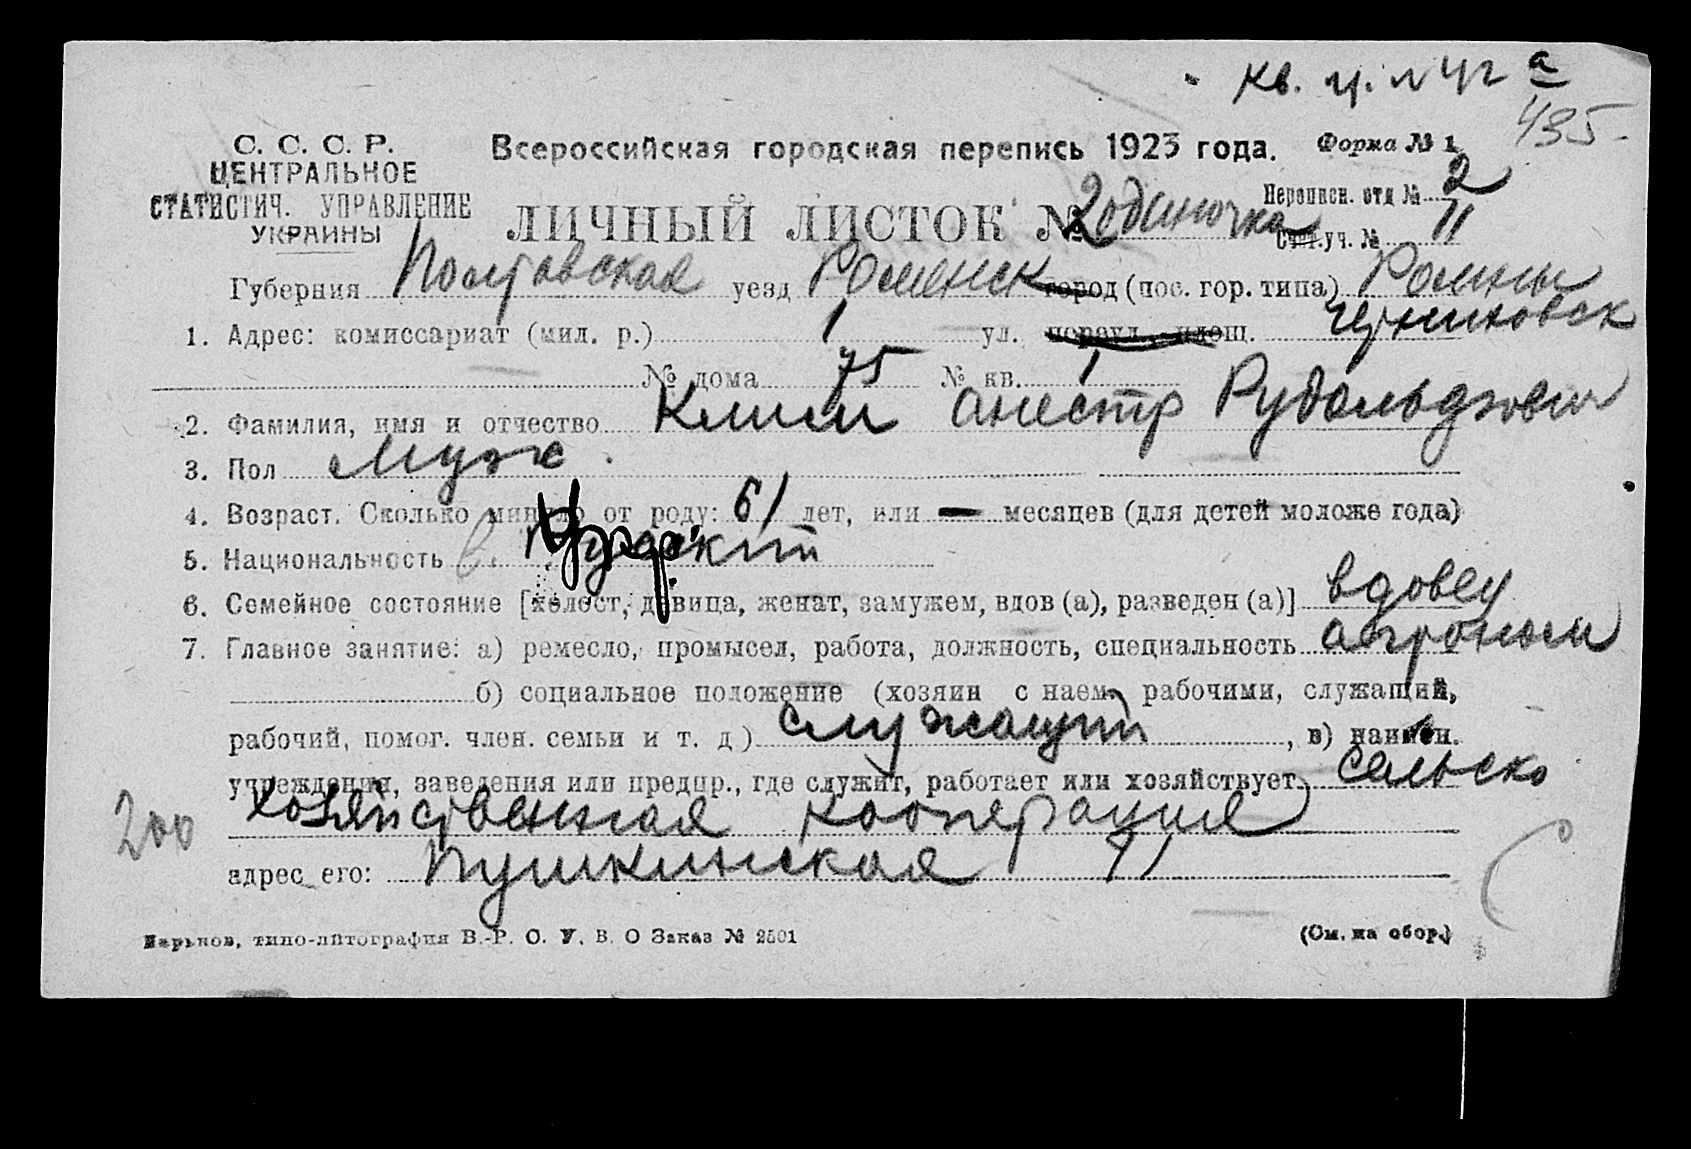 кв. ч. № 42 а
435.
С. С. С. Р.
ЦЕНТРАЛЬНОЕ
СТАТИСТИЧ. УПРАВЛЕНИЕ
УКРАИНЫ
Всероссийская городская перепись 1923 года. Форма № 1
Переписн. отд № 2
ЛИЧНЫЙ ЛИСТОК № 2 одиночка
Счет.уч. № 11
Губерния Полтавская уезд Роменск город (пос. гор. типа) Ромны
1. Адрес: комиссариат (мил. р.) 1 ул. переул., площ.
№ дома 75 № кв. 1
2. Фамилия, имя и отчество Рудольфович
3. Пол Муж.
4. Возраст. Сколько минуло от роду: 61 лет, или — месяцев (для детей моложе года)
5. Национальность
6. Семейное состояние [холост, девица, женат, замужем, вдов (а), разведен (а)] вдовец
7. Главное занятие: а) ремесло, промысел, работа, должность, специальность агроном
б) социальное положение (хозяин с наем. рабочими, служащий,
рабочий, помог. член. семьи и т. д) служащий, в) наимен.
учреждения, заведения или предпр., где служит, работает или хозяйствует сельско
хозяйственная кооперация
200
адрес его: Пушкинская 71
Харьков, типо-литография В.-Р. О. У. В. О Заказ № 2501
(См. на обор.)